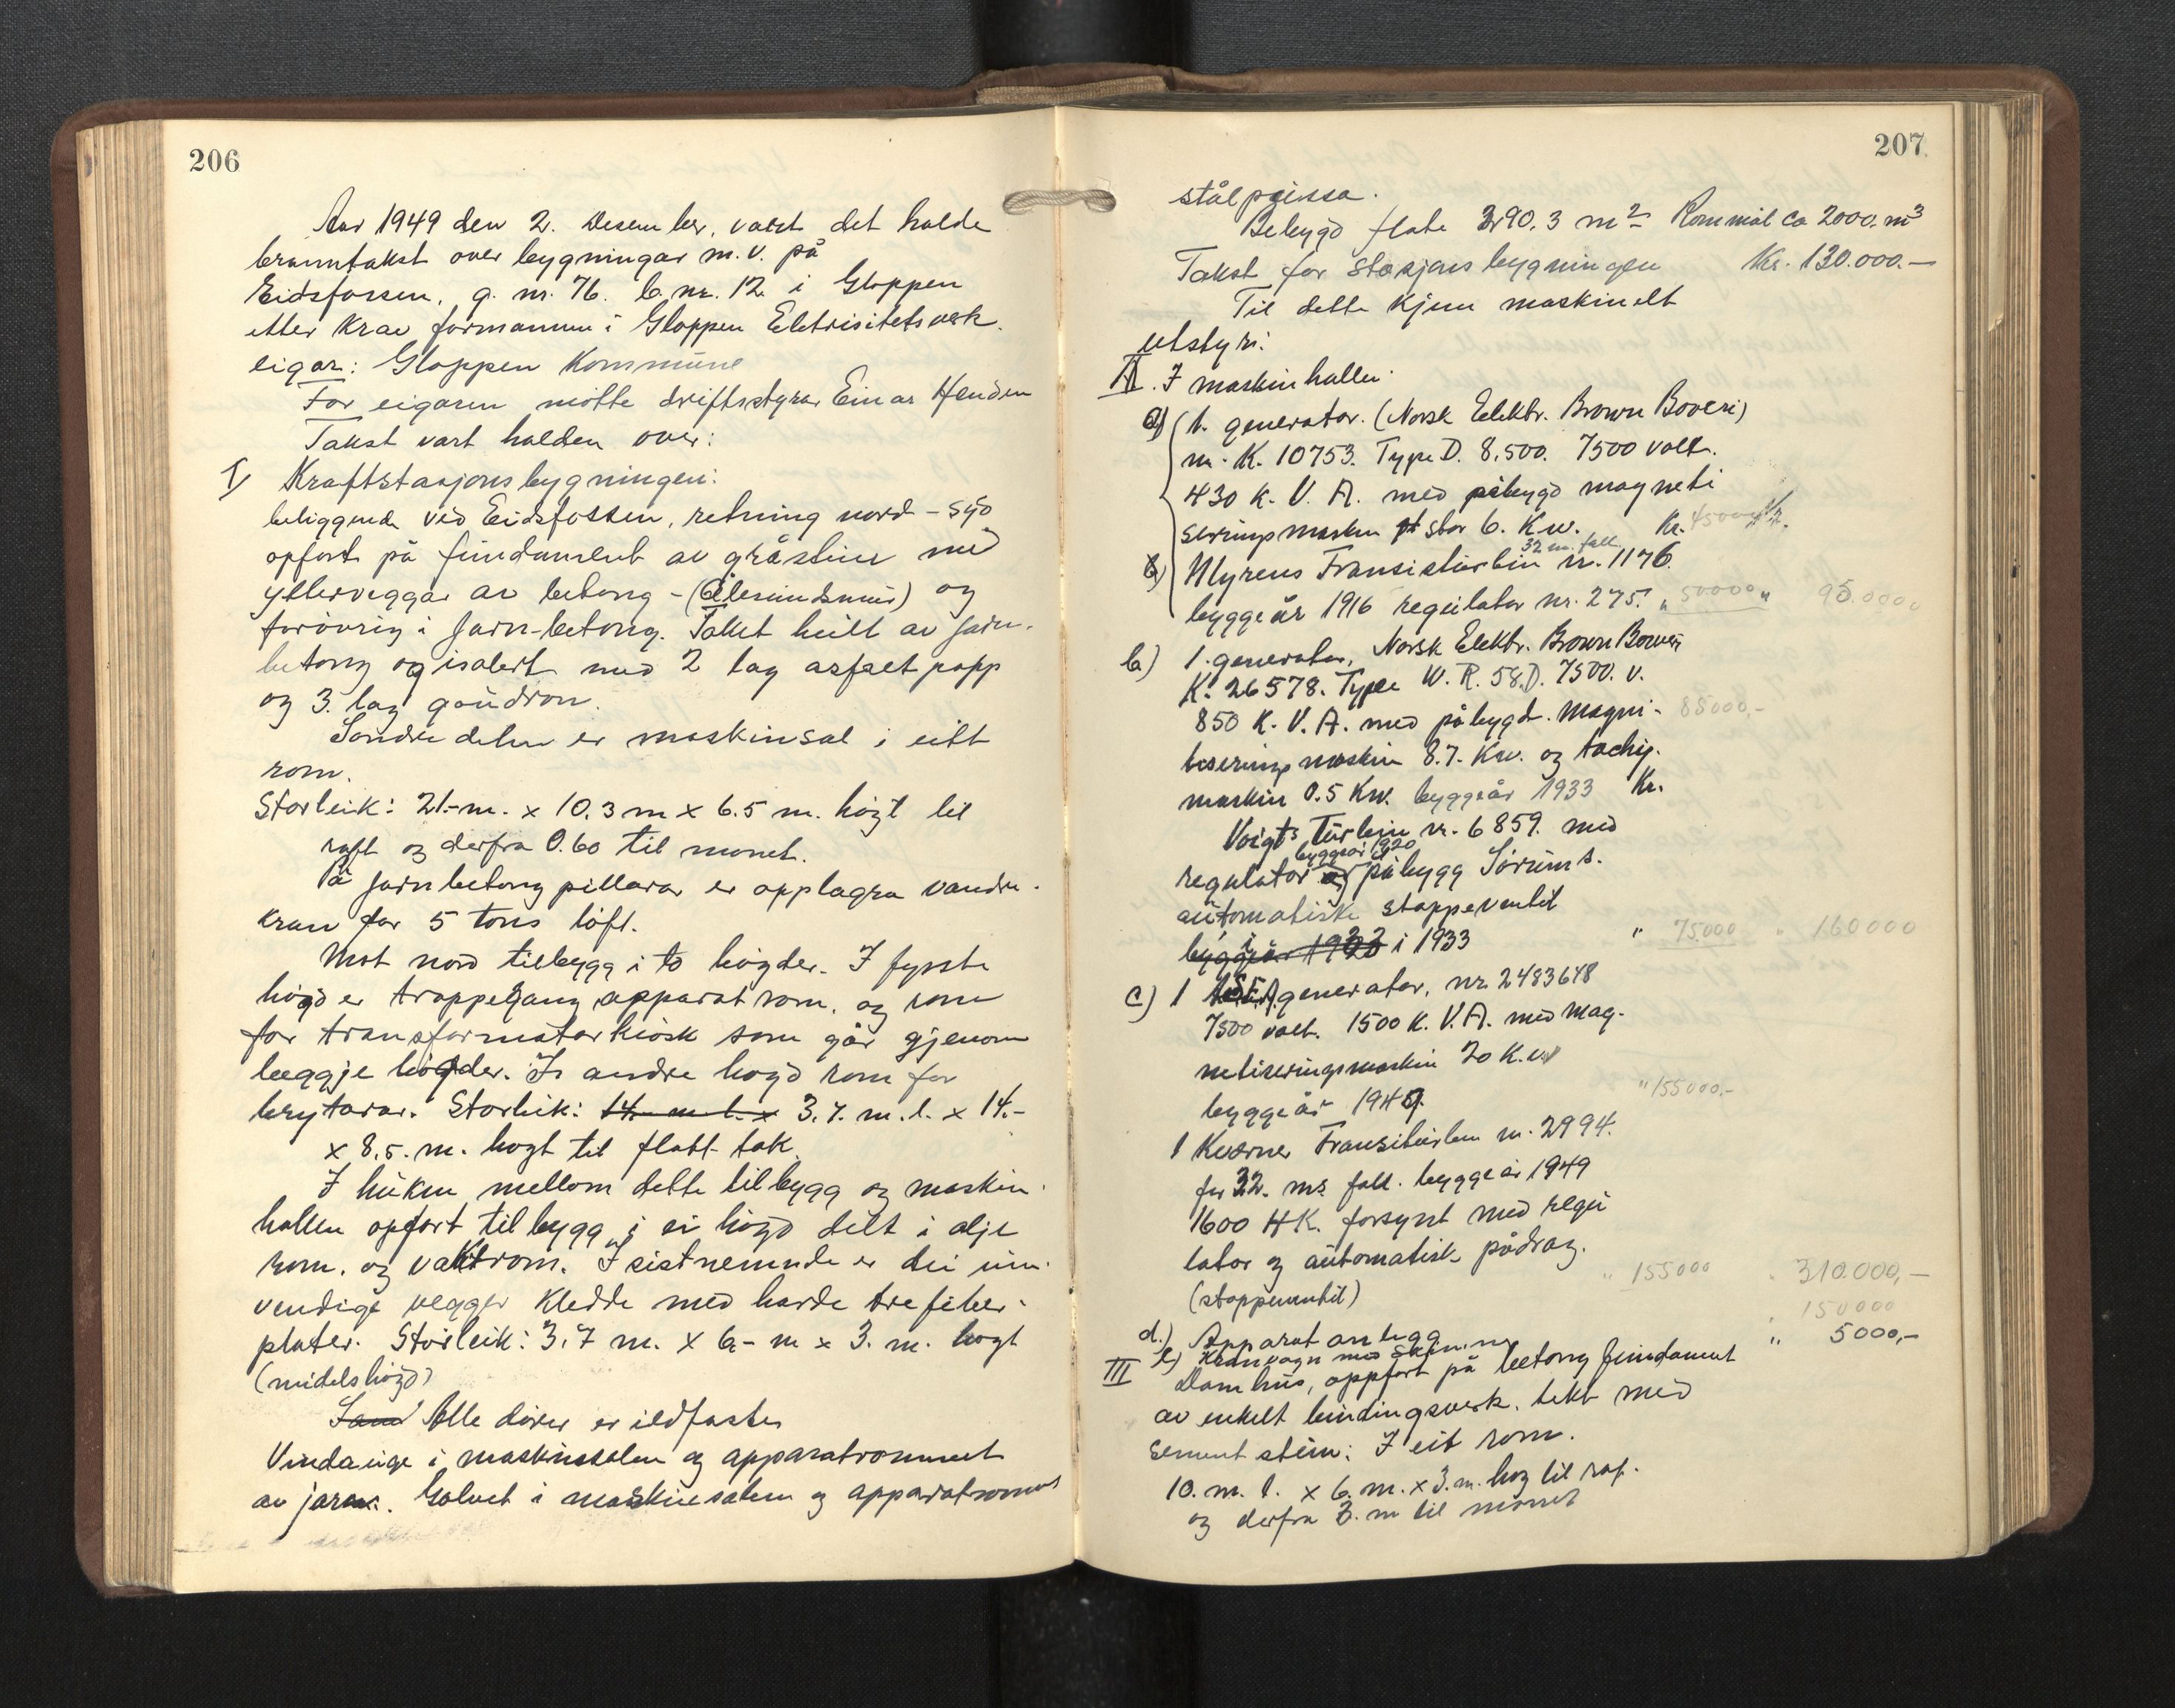 206
Aar 1949 den 2. Desember, vart det halde
branntakst over bygningar m.v. på
Eidsfossen, g. nr. 76. b. nr. 12 i Gloppen
etter krav formannen i Gloppen Eletrisitetsverk.
eigar: Gloppen Kommune
For eigaren møtte driftsstyrar Einar Henden
Takst vart halden over:
I, Kraftstasjonsbygningen:
beliggende ved Eidsfossen, retning nord - syd
opført på fundament av gråstein med
ytterveggar av betong - (Ålesundsmur) og
forøvrig i jarn-betong. Taket heilt av jarn-
betong og isolert med 2 lag asfaltpapp
og 3. lag goudron.
Søndre delen er maskinsal i eitt
rom.
Storleik: 21.- m. x 10.3 m x 6.5 m. högt til
raft og derfra 0.60 til mønet.
På jarnbetong pillarar er opplagra vandre-
kran for 5 tons løft.
Mot nord tilbygg i to høgder. I fyrste
høgd er trappegang, apparatrom, og rom
for transformatorkiosk som går gjenom
beggje høgder. I andre høgd rom for
brytarar. Storleik: 14. m l. x 3.7. m. l. x 14.-
x 8.5. m. høgt til flatt tak.
I huken mellom dette tilbygg og maskin-
hallen opført tilbygg i ei høgd delt i olje
rom. og vaktrom. I sistnemnde er dei inn-
vendige vegger kledde med harde trefiber-
plater. Storleik: 3.7 m. x 6.- m x 3. m. høgt
(midelshøgd)
Alle dører er ildfaste
Vindauge i maskinsalen og apparatrommet
av jarn. Golvet i maskinsalen og apparatrommet
207
stålpussa.
Bebygd flate 290.3 m² Rommål ca 2000. m³
Takst for stasjonsbygningen Kr. 130.000.-
Til dette kjem maskinelt
utstyr:
II. I maskinhallen.
a) 1. generator. (Norsk Elektr. Brown Boveri)
nr. K. 10753. Type D. 8.500. 7500 volt.
430 K. V. A. med påbygd magneti
seringsmaskin stor 6. Kw. Kr. 45000
32 m. fall.
Myrens Fransisturbin nr. 1176.
byggeår 1916 regulator nr. 275. " 50000 " 95.000
b) 1. generator, Norsk Elektr. Brown Boveri
K. 26578. Type W. R. 58.D. 7500. v.
850 K. V. A. med påbygd. Magni- 85000.-
tsseringsmaskin 8.7. Kw. og tachy-
maskin 0.5 Kw. byggeår 1933 Kr.
Voigts Turbin nr. 6859. med
byggeår 1920
regulator påbygg Sørums.
automatiske stoppeventil
byggeår 1933 i 1933 " 75.000 " 160000
c) 1 ASEA generator, nr. 2483648
7500 volt. 1500 K. V. A. med mag-
netiseringsmaskin 20 K.w
byggeår 1949. " 155000.-
1 Kværner Fransisturbin nr. 2994.
for 32. ms fall. byggeår 1949
1600 HK. forsynt med regu
lator og automatisk pådrag.
(stoppeventil) " 155000 " 310.000,-
d.) Apparatanlegg " 150000
e) Kranvogn med skinner " 5000,-
III Damhus, oppført på betong fundament
av enkelt bindingsverk. tekt med
sement stein: I eit rom.
10. m. l. x 6. m. x 3. m. høg til raf.
og derfra 3. m til mønet